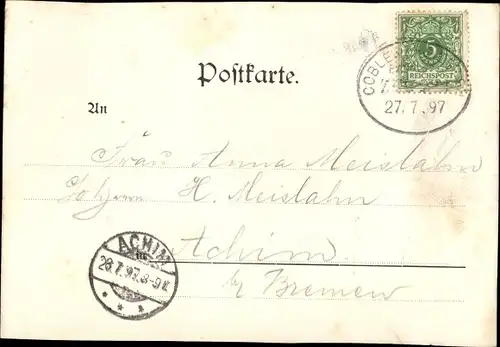 5
REICHSPOST
COBLE
27.7.97
Postkarte.
An
Frau Anna Meislahn
H. Meislahn
ACHIM
28.7.97.8-9V.
Achim
b/ Bremen